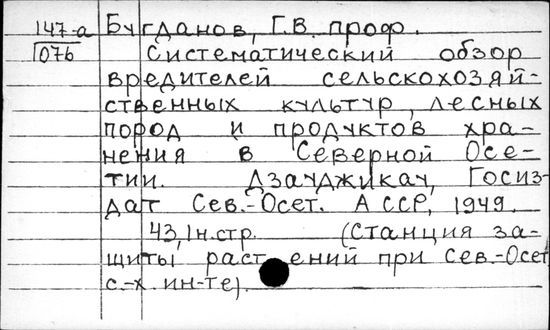 147-а Бугданов, Г.В. проф.
076 Систематический обзор
вредителей сельскохозяй-
ственных культур, лесных
пород и продуктов хра-
нения в Северной Осе-
тии. Дзауджикау, Госиз-
дат Сев.-Осет. АССР, 1949.
43,1н.стр. (Станция за-
щиты раст ений при Сев.-Осет
с.-х. ин-те).